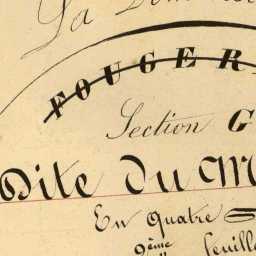 La
FOUGER
Section G
Dite Du M
En Quatre
2ème feuille